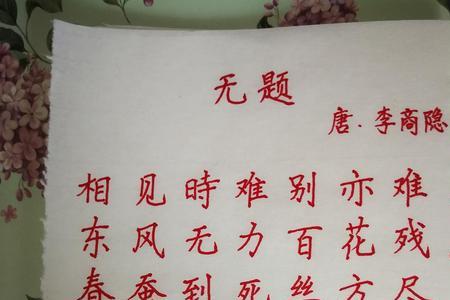 无题
唐.李商隐
相见時难别亦难
东风无力百花残
春蚕到死丝方尽